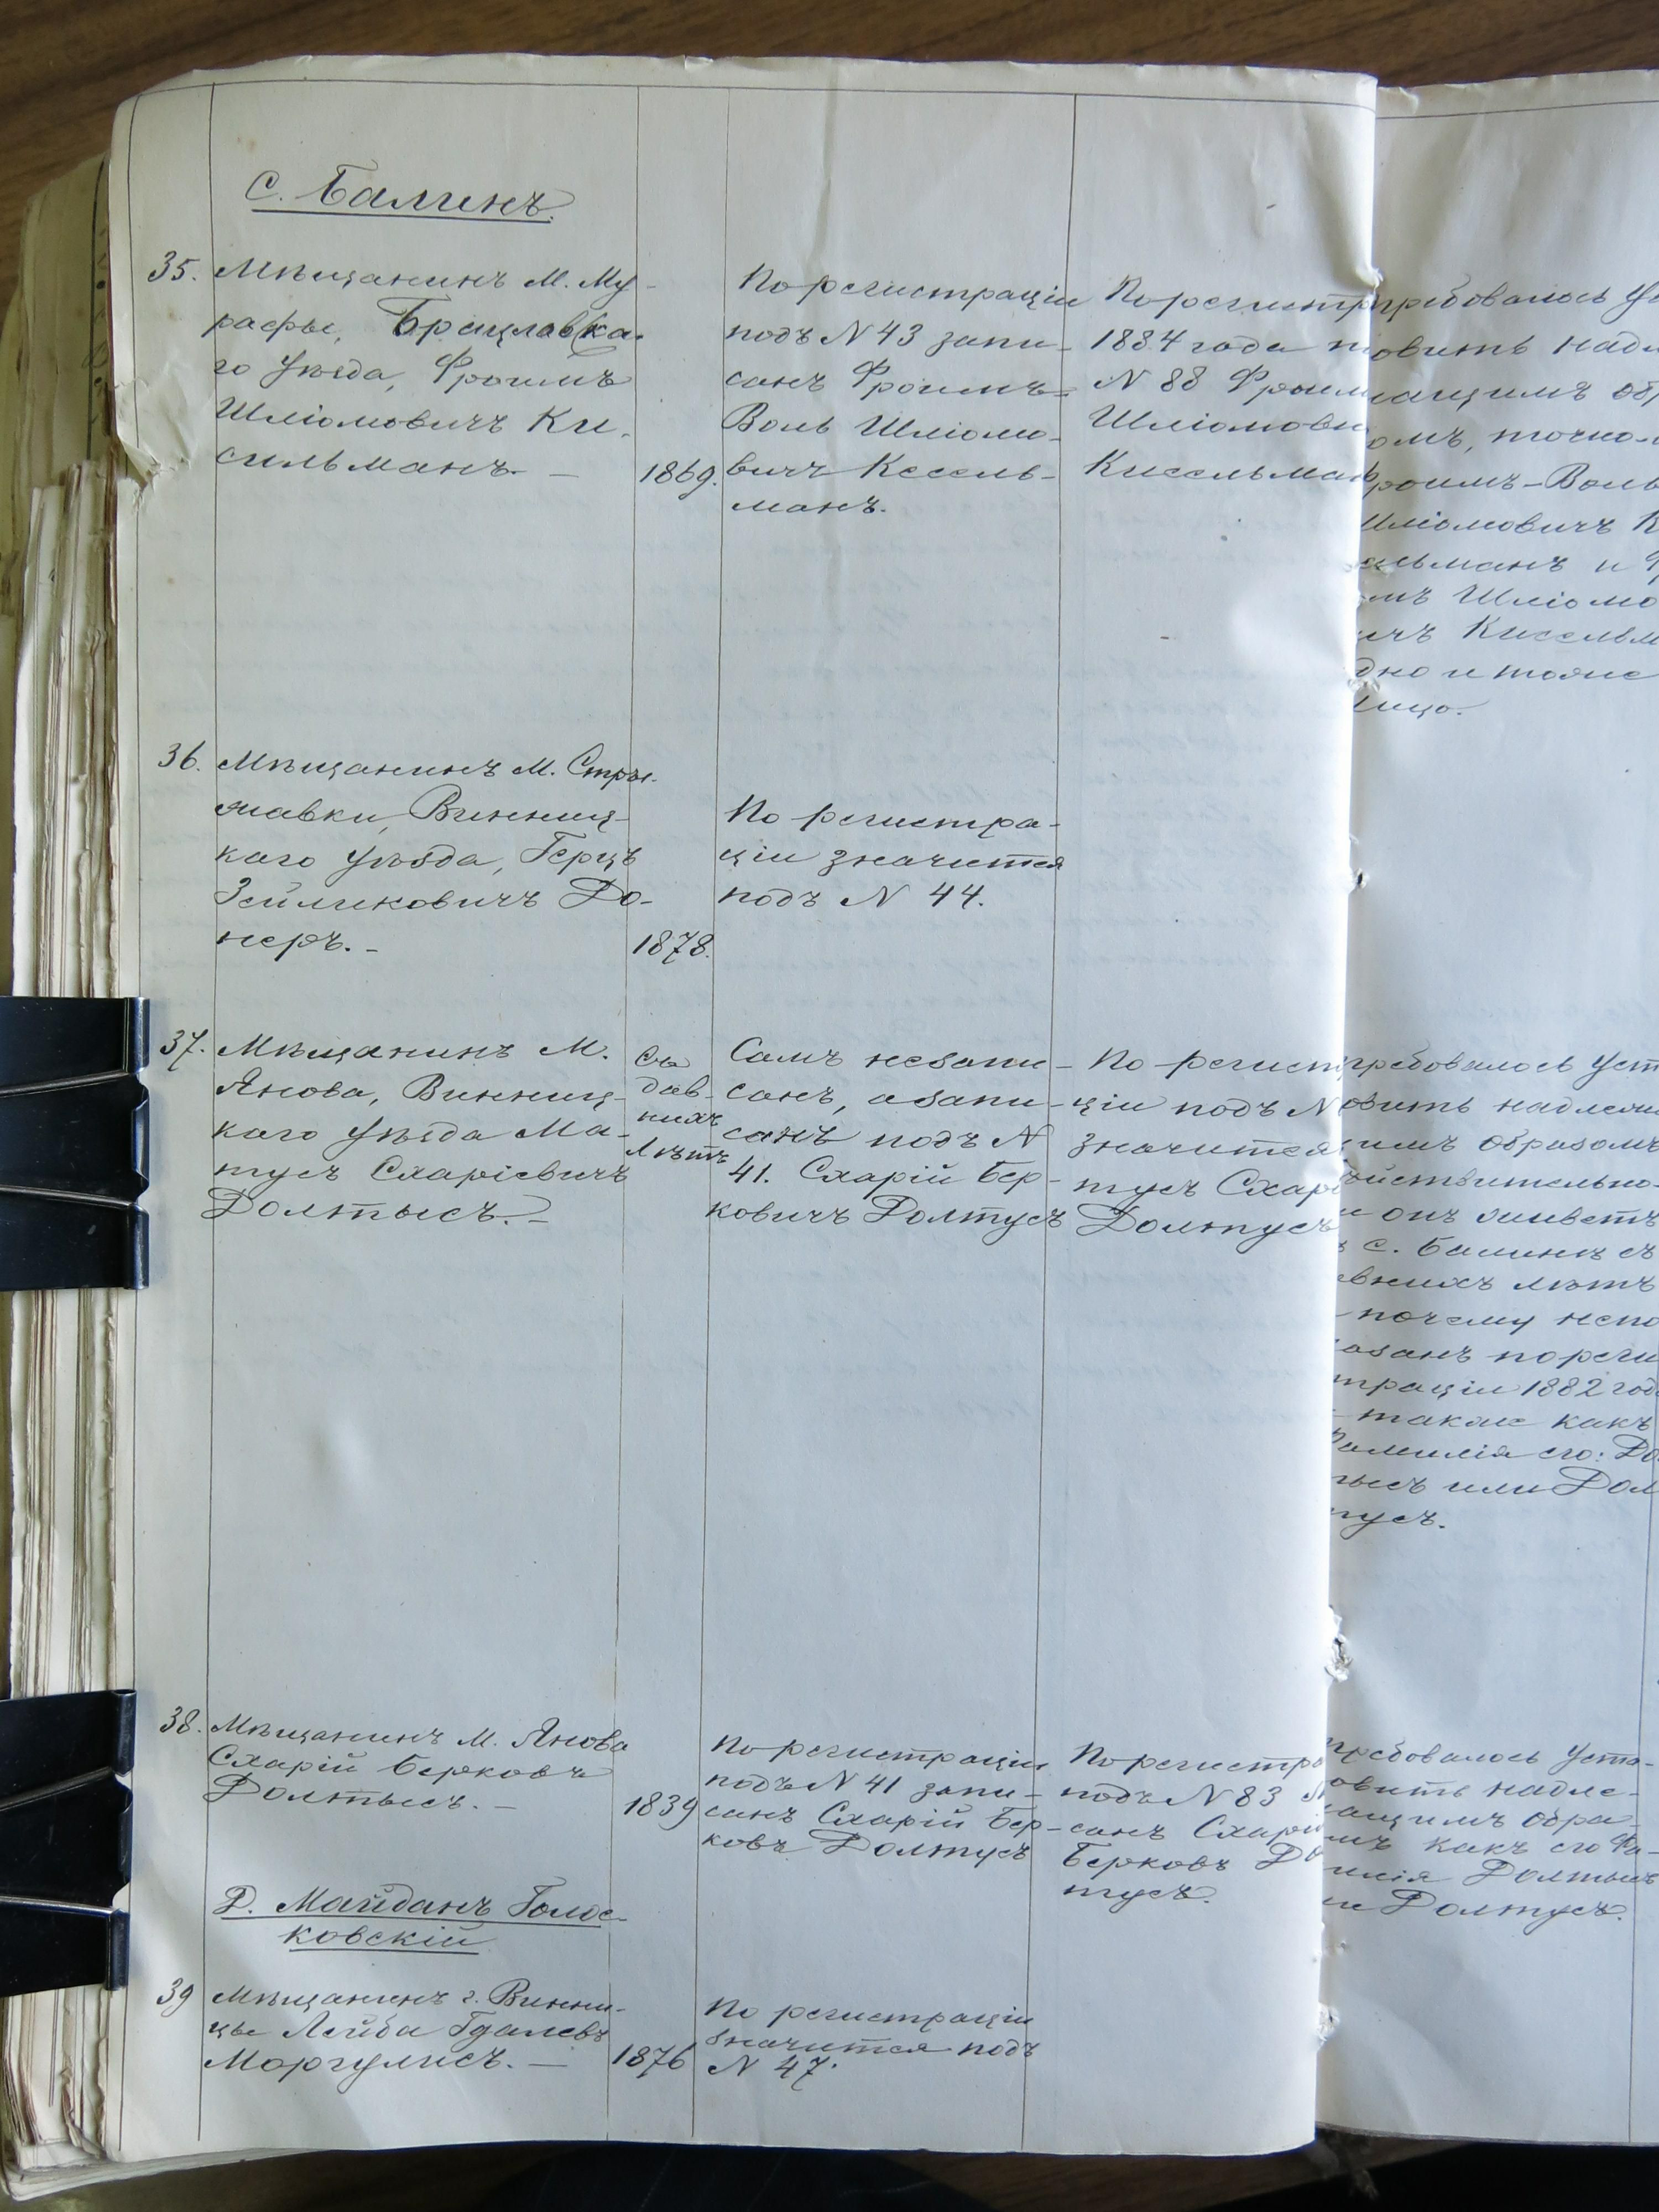 с. Балинъ.
35. Мѣщанинъ м. Му-
рафы, Брацлавска-
го уѣзда, Фроимъ
Шліомовичъ Ки-
сильманъ. —
1869.
По регистраціи
подъ N 43 запи-
санъ Фроимъ-
Воль Шліомо-
вичъ Кесель-
манъ.
По регистр
1884 года п
N 88 Фроим
Шліомови
Кисельман
требовалось
овить надл
ащимъ об
омъ, точно-
роимъ-Воль
Шліомовичъ К
ельманъ и
имъ Шліомо
ичъ Кисельм
дно и тоже
лицо.
36. Мѣщанинъ м. Стры-
жавки, Винниц-
каго уѣзда, Герцъ
Зейликовичъ До-
неръ. —
1878.
По регистра-
ціи значится
подъ N 44.
37. Мѣщанинъ м.
Янова, Винниц-
каго уѣзда Ма-
тусъ Схаріевичъ
Долтысъ. —
Съ
дав-
нихъ
лѣтъ
Самъ незапи-
санъ, а запи-
санъ подъ N
41. Схарій Бер-
ковичъ Долтусъ
По регист
ціи подъ N
значится
тусъ Схар
Долтусъ
требовалось уст
овить надлежа
имъ образомъ
ѣйствительно-
и онъ живетъ
с. Балинѣ съ
авнихъ лѣтъ
почему непо
казанъ по реги
траціи 1882 год
также какъ
Фамилія его: До
тысъ или Дол
тусъ.
38. Мѣщанинъ м. Янова
Схарій Берковъ
Долтысъ. —
1839
По регистраціи
подъ N 41 запи-
санъ Схарій Бер-
ковъ Долтусъ
По регистра
подъ N 83
санъ Схарі
Берковъ До
тусъ.
требовалось уста-
овить надле-
ащимъ обра-
мъ какъ его Фа-
милія Долтысъ
и Долтусъ.
Д. Майданъ Голос-
ковскій
39 Мѣщанинъ г. Винни-
цы Лейба Гдалевъ
Моргулисъ. —
1876
По регистраціи
значится подъ
N 47.